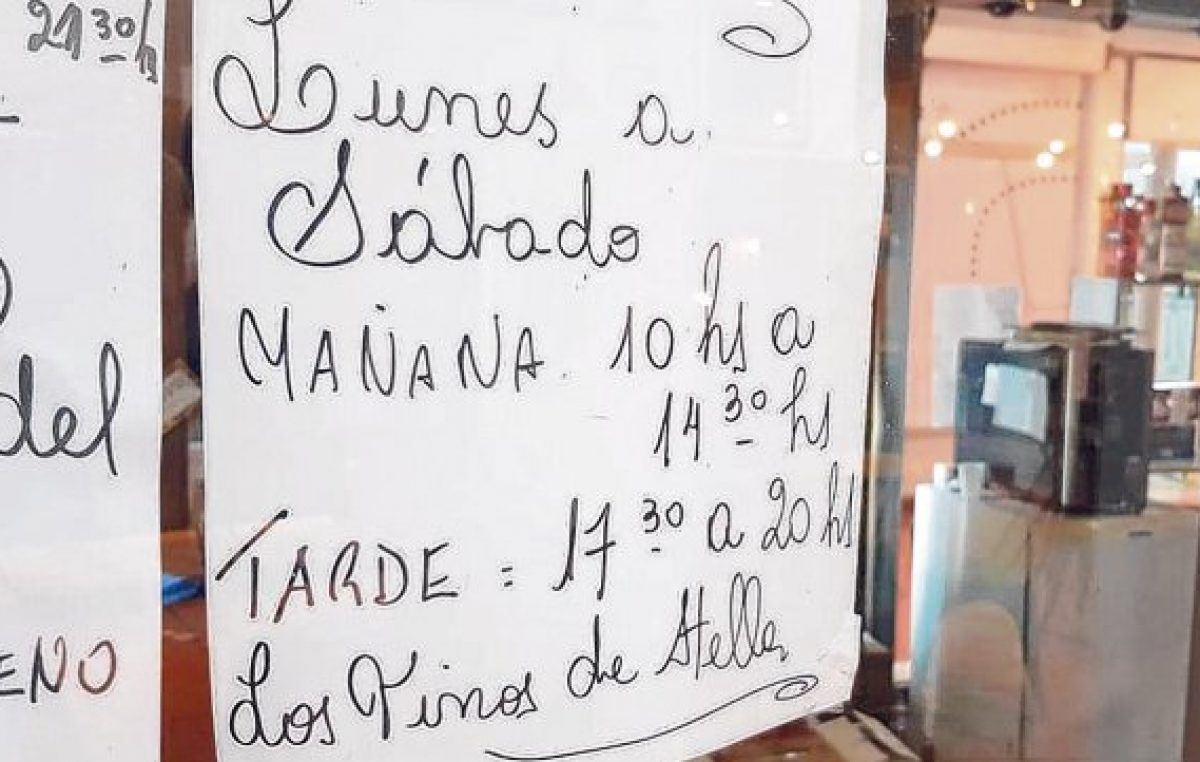 21 30 h
del
ENO
Lunes a
Sábado
MAÑANA. 10 hs a
14 30 hs
TARDE = 17 30 a 20 hs
Los Vinos de Stella